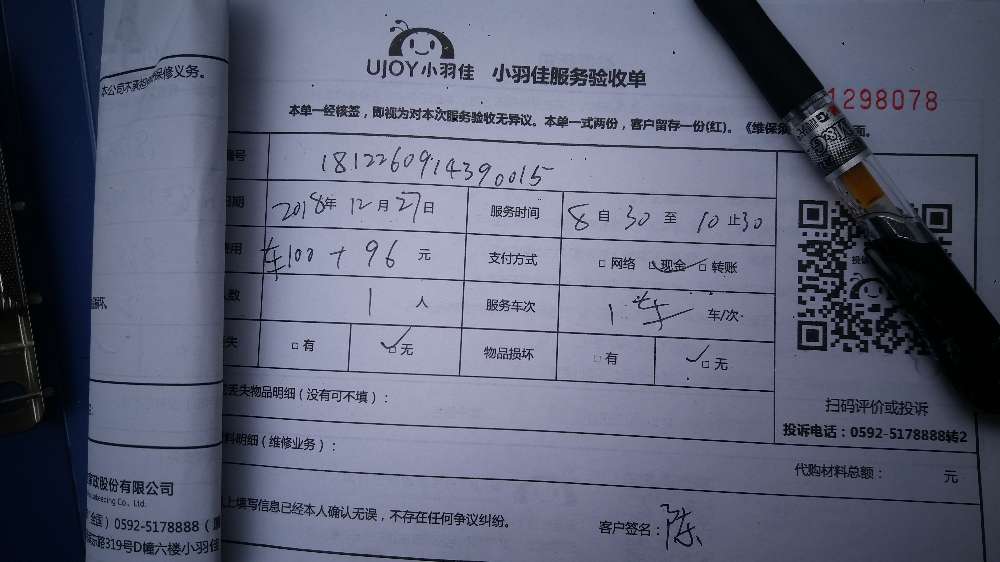 本公司不承担 保修义务。
UJOY小羽佳 小羽佳服务验收单
1298078
本单一经核签，即视为对本次服务验收无异议。本单一式两份，客户留存一份(红)。《维保 面。
号 1812260914390015
日期 2018年12月27日 服务时间 8自30至10止30
费用 车100+96元 支付方式 □网络 ☑现金 □转账
人数 1人 服务车次 1车 车/次
失 □有 ☑无 物品损坏 □有 ☑无
丢失物品明细（没有可不填）：
料明细（维修业务）：
代购材料总额： 元
扫码评价或投诉
投诉电话：0592-5178888转2
上填写信息已经本人确认无误，不存在任何争议纠纷。
客户签名：陈
家政股份有限公司
Co., Ltd.
0592-5178888
路319号D幢六楼小羽佳